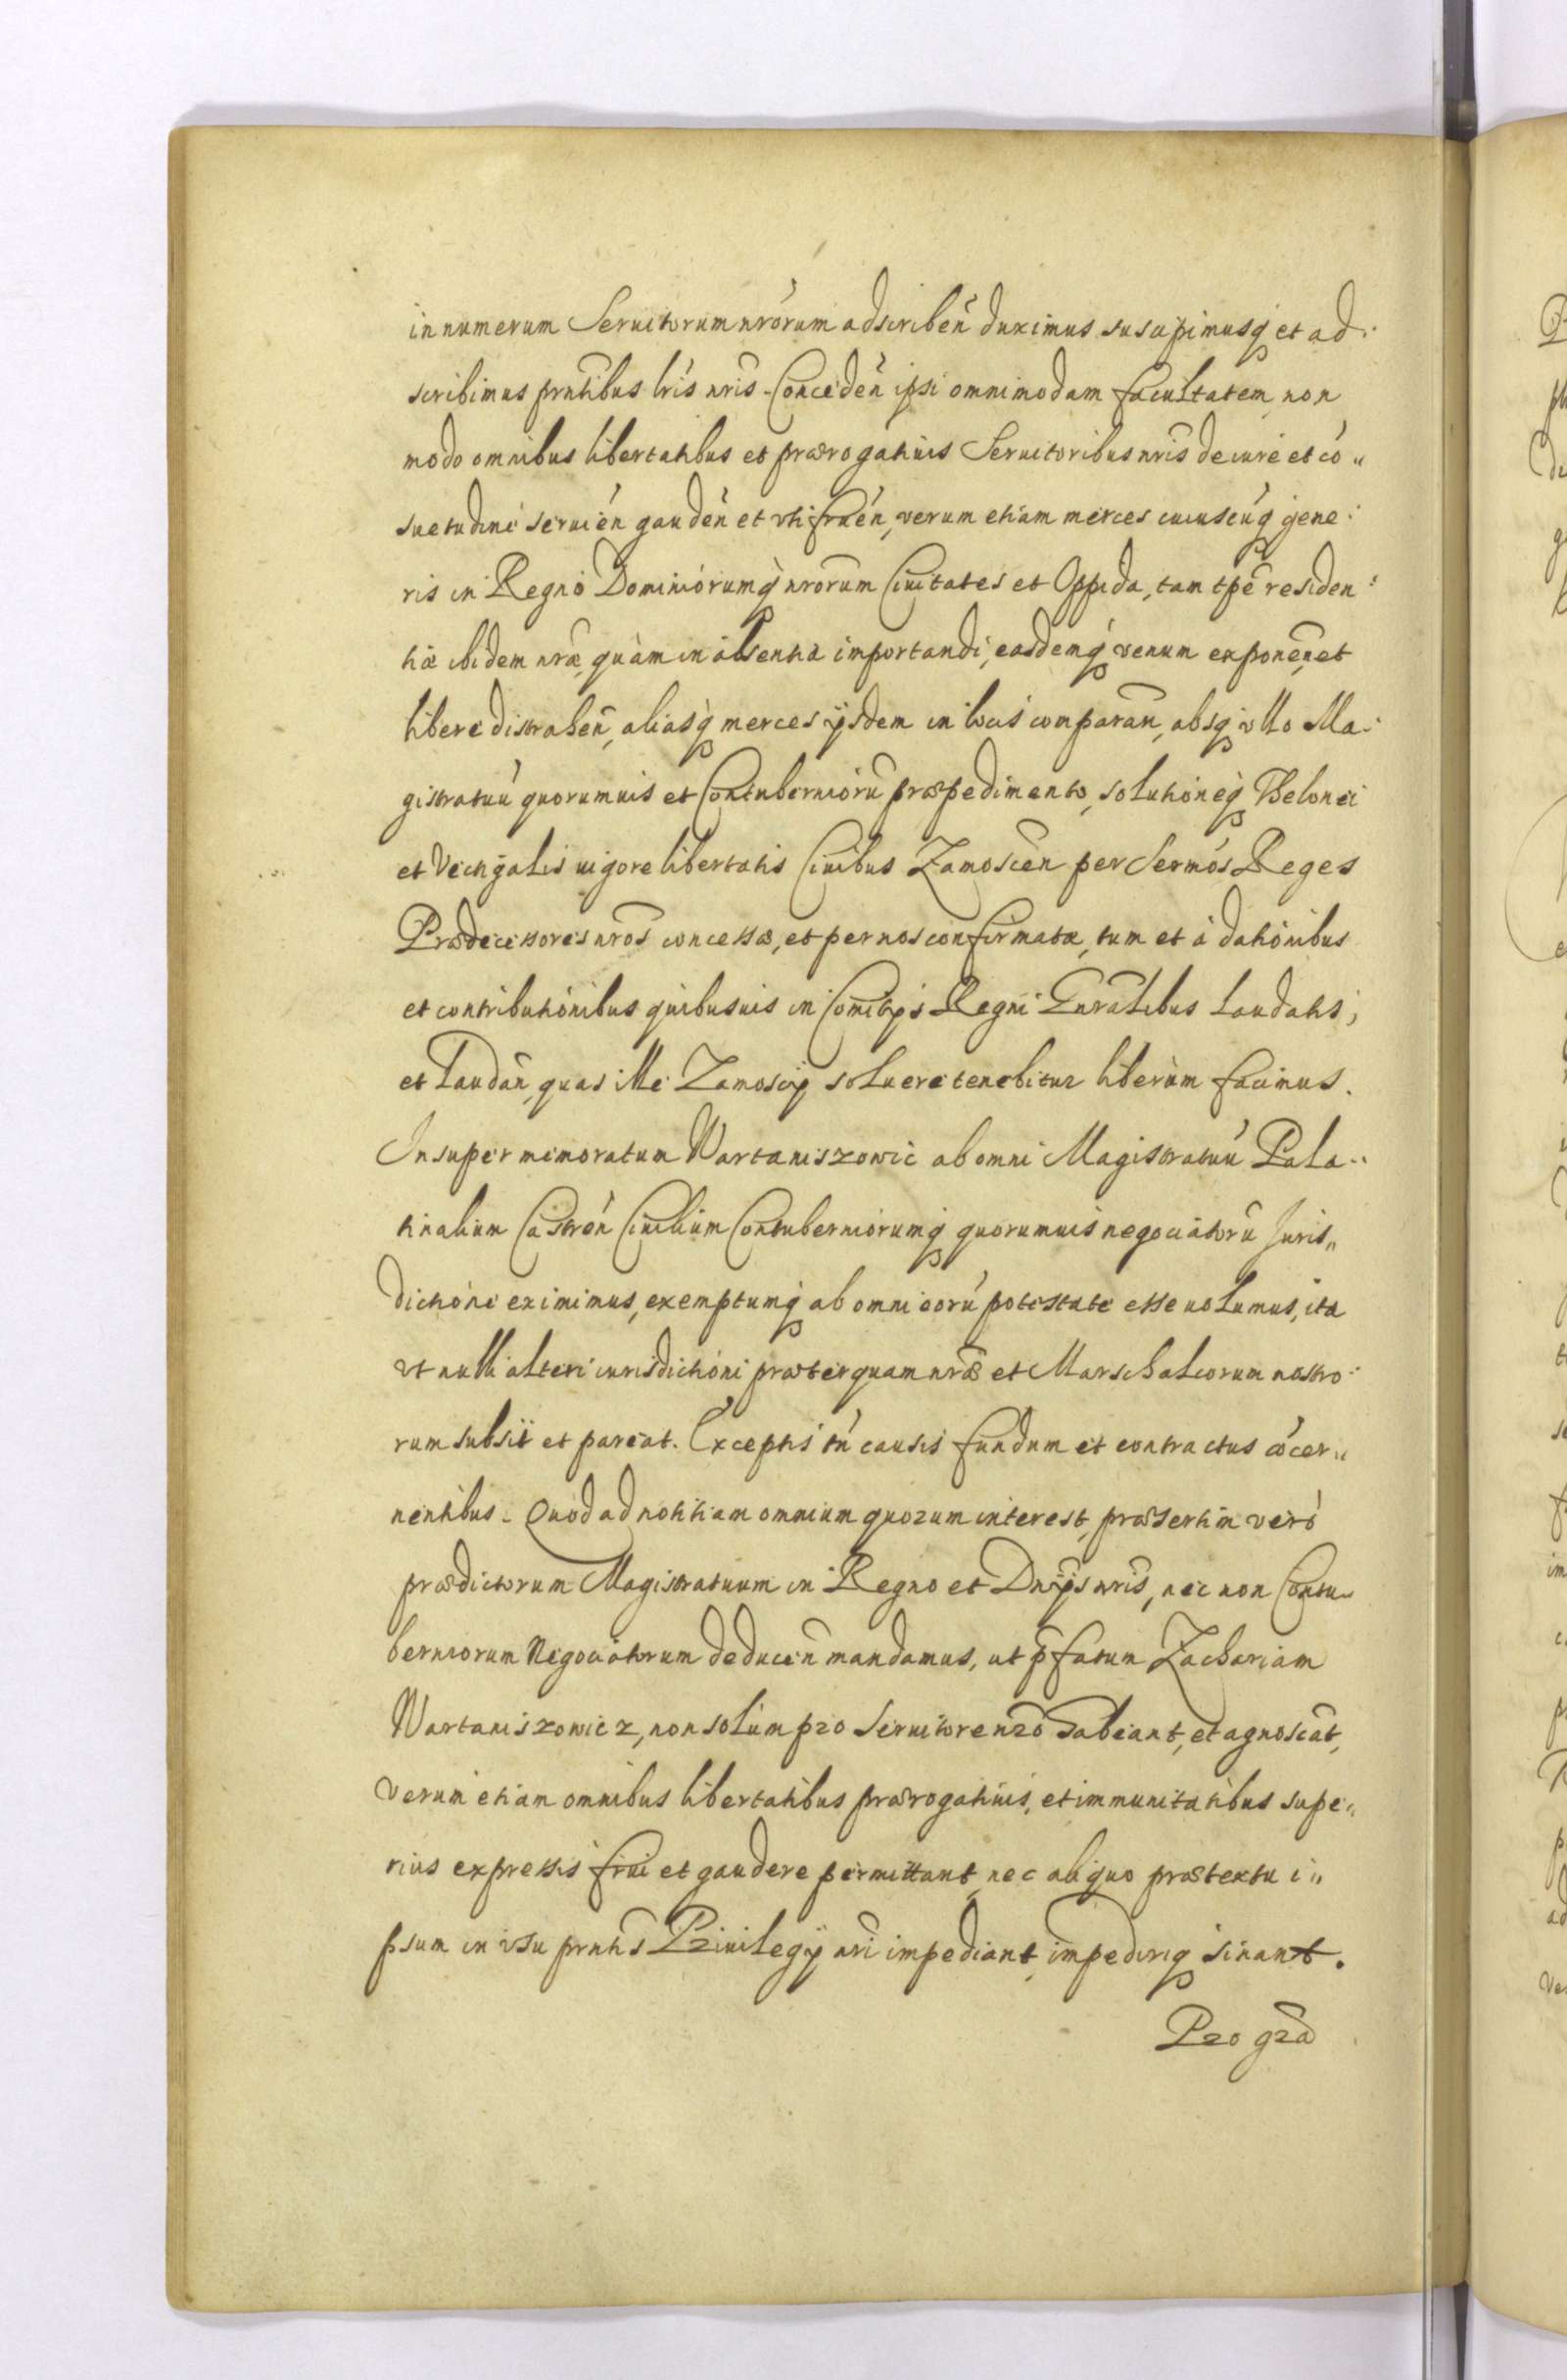 in numerum Seruitorum nrórum adscribeñ duximus suscipimusq́ et ad:
scribimus prntibus lrís nrís. Concedeñ ipsi omnimodam facultatem, non
modo omnibus libertatibus et prærogatiuis Seruitoribus nrís de iure et có„
suetudine seruień gaudeñ et vti frué́n, verum etiam merces cuiuscúq́ gene:
ris in Regno Dominiórumq́ nrórum Ciuitates et Oppida, tam tpé residen:
tiæ ibidem nræ, quàm in absentia importandi, easdemq́ venum exponeñ, et
libere distraheñ, aliasq́ merces ijsdem in locis comparañ, absq́ vllo Ma:
gistratuú quorumuis et Contuberniorũ præpedimento, solutioneq́ Thelonei
et Vectigalis uigore libertatis Ciuibus Zamosceñ per Sermós Reges
Prædecessores nros concessæ, et per nos confirmatæ, tum et à dationibus
et contributionibus quibusuis in Comitijs Regni Gnralibus laudatis,
et laudañ, quas ille Zamoscij soluere tenebitur liberum facimus.
Insuper memoratum Wartaniszowic ab omni Magistratuú Pala:
tinalium Castreń Ciuilium Contuberniórumq́ quorumuis negociatorũ Juris„
dictióne eximimus, exemptumq́ ab omni eorú potestate esse uolumus, ita
vt nulli alteri iurisdictióni præterquam nræ et Marschalcorum nostro:
rum subsit et pareat. Exceptis tń causis fundum et contractus cócer„
nentibus. Quod ad notitiam omnium quorum interest, præsertim vero
prædictorum Magistratuum in Regno et Dnijs nrís, nec non Contu„
berniorum Negociatorum deduceñ mandamus, ut p̃fatum Zachariam
Wartaniszowicz, non solúm pro Seruitore nró habeant, et agnoscãt,
verum etiam omnibus libertatibus prærogatiuis, et immunitatibus supe„
rius expressis frui et gaudere permittant, nec aliquo prætextu i„
psum in vsu prntis Priuilegij nri impediant, impediriq́ sinant.
Pro grã